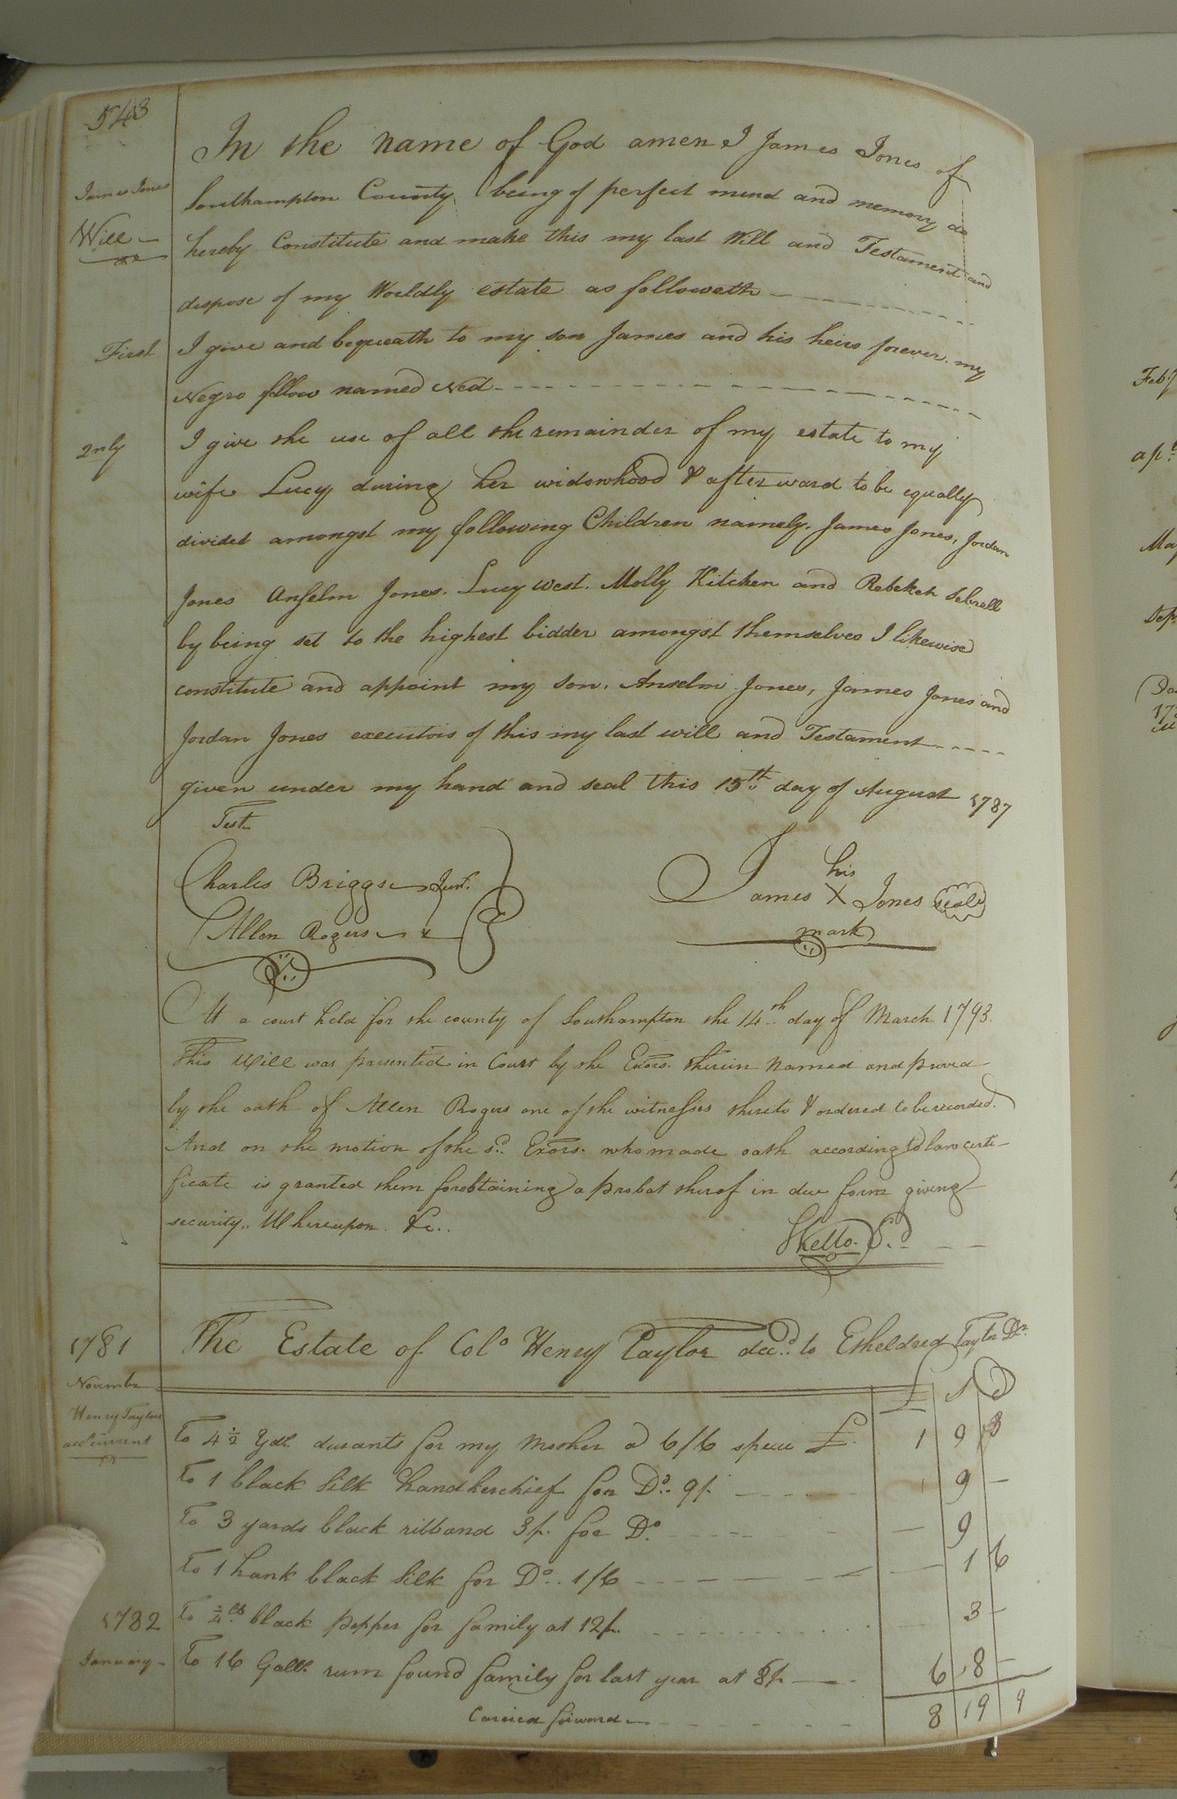 543
In the name of God amen I James Jones of
James Jones
Southampton County being of perfect mind and memory do
Will
hereby Constitute and make this my last Will and Testament and
dispose of my Worldly estate as followeth
First I give and bequeath to my son James and his heirs forever my
Negro fellow named Ned
2nly I give the use of all the remainder of my estate to my
wife Lucy during her widowhood & afterward to be equally
divided amongst my following Children namely. James Jones, Jordan
Jones Anselm Jones. Lucy West. Molly Kitchen and Rebekah Sebrell
by being set to the highest bidder amongst themselves I likewise
constitute and appoint my son. Anselm Jones, James Jones and
Jordan Jones executors of this my last will and Testament
given under my hand and seal this 15th day of August 1787
Test
Charles Briggs Junr.
Allen Rogers
his
James X Jones seal
mark
At a court held for the county of Southampton the 14th day of March 1793.
This Will was presented in Court by the Exors. therein Named and proved
by the oath of Allen Rogers one of the witnesses thereto & ordered to be recorded.
And on the motion of the sd. Exors. who made oath according to law certi-
ficate is granted them for obtaining a probat therof in due form giving
security.. Whereupon &c..
SKello. C.
1781 The Estate of Colo Henry Taylor decd. to Etheldred Taylor Dr.
November
£ S D
Henry Taylors
acct current
To 4 1/2 Yds. durants for my Mother a 6/6 specie £. 1 9 3
To 1 black silk handkerchief for Do. 9/. 9 -
To 3 yards black ribband 3/. for Do. 9
To 1 hank black silk for Do.. 1/6 1 6
1782 To 1/4 lb black pepper for family at 12/. 3 -
January To 16 Galls. rum found family for last year at 8/. 6 8 -
Carried forward 8 19 9
Feb
ap
May
Sep